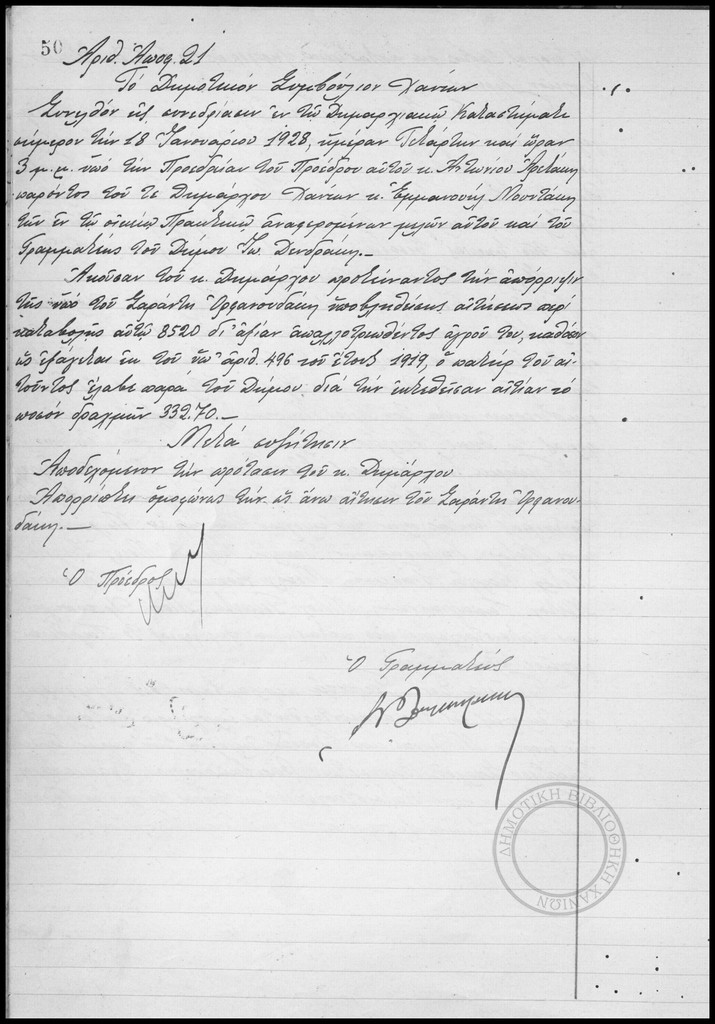 50
Ἀριθ. Ἀποφ. 21
Τὸ Δημοτικὸν Συμβούλιον Χανίων
Συνελθὸν εἰς συνεδρίασιν ἐν τῷ Δημαρχιακῷ Καταστήματι
σήμερον τὴν 18 Ἰανουαρίου 1928, ἡμέραν Τετάρτην καὶ ὥραν
3 μ.μ. ὑπὸ τὴν Προεδρίαν τοῦ Προέδρου αὐτοῦ κ. Ἀντωνίου
παρόντος τοῦ τε Δημάρχου Χανίων κ. Ἐμμανουὴλ Μουντάκη
τῶν ἐν τῷ οἰκείῳ Πρακτικῷ ἀναφερομένων μελῶν αὐτοῦ καὶ τοῦ
Γραμματέως τοῦ Δήμου Ἰω. Δενδράκη.—
Ἀκοῦσαν τοῦ κ. Δημάρχου προτείναντος τὴν ἀπόρριψιν
τῆς ὑπὸ τοῦ Σαράντη Ὀρφανουδάκη ὑποβληθείσης αἰτήσεως περὶ
καταβολῆς αὐτῷ 8520 δι' ἀξίαν ἀπαλλοτριωθέντος ἀγροῦ του, καθόσον
ὡς ἐξάγεται ἐκ τοῦ ὑπ' ἀριθ. 496 τοῦ ἔτους 1919, ὁ πατὴρ τοῦ αἰ-
τοῦντος ἔλαβε παρὰ τοῦ Δήμου διὰ τὴν ἐκτεθεῖσαν αἰτίαν τὸ
ποσὸν δραχμῶν 332.70.—
Μετὰ συζήτησιν
Ἀποδεχόμενον τὴν πρότασιν τοῦ κ. Δημάρχου
Ἀπορρίπτει ὁμοφώνως τὴν ὡς ἄνω αἴτησιν τοῦ Σαράντη Ὀρφανου-
δάκη.—
Ὁ Πρόεδρος
Ὁ Γραμματεύς
ΔΗΜΟΤΙΚΗ ΒΙΒΛΙΟΘΗΚΗ ΧΑΝΙΩΝ